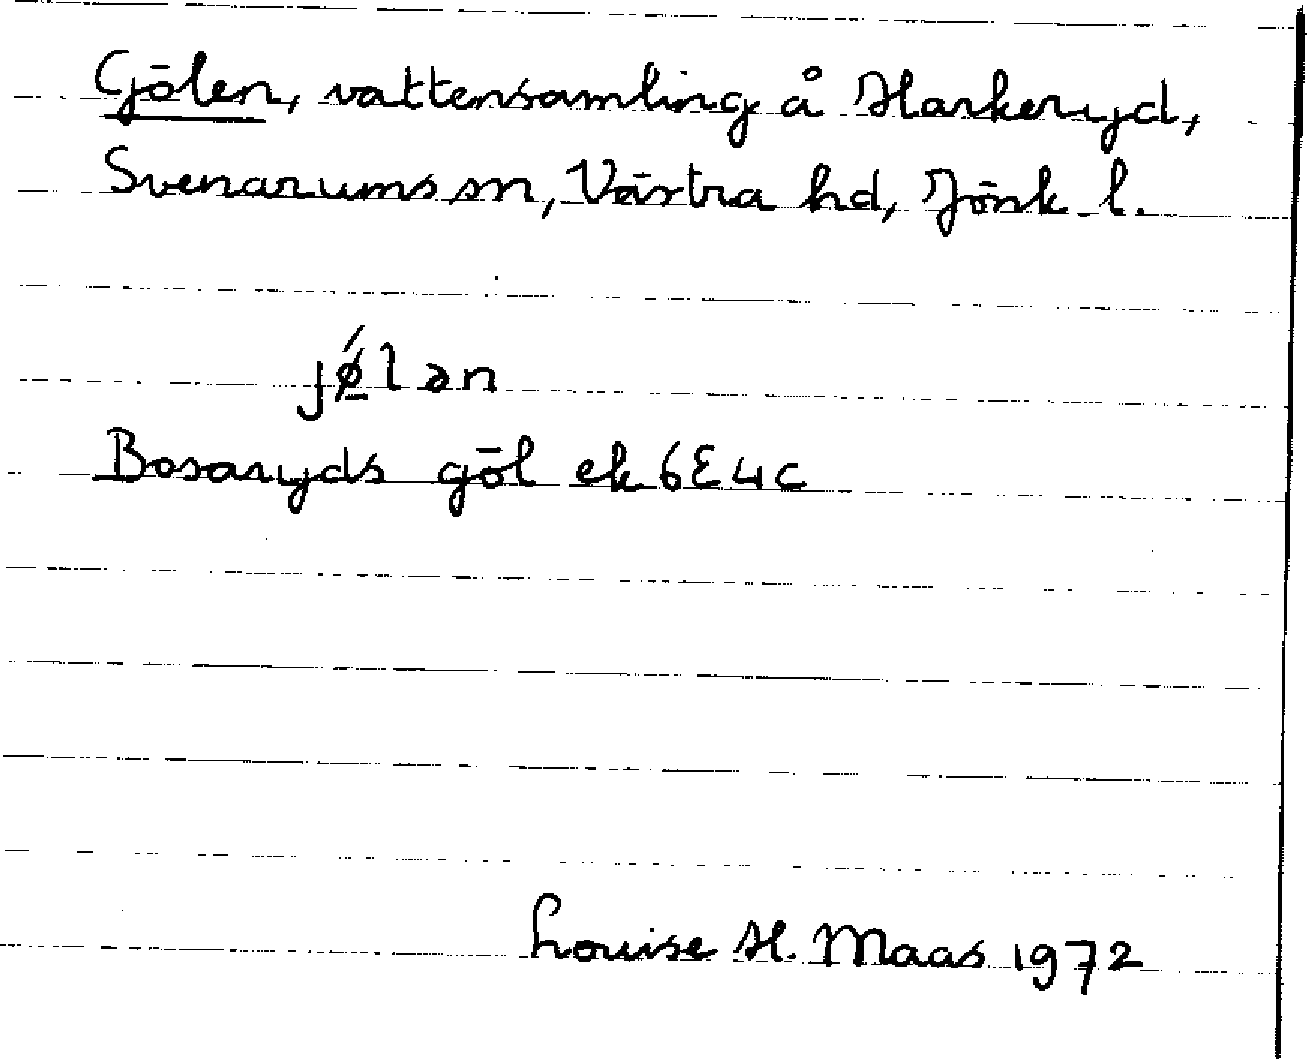 Gölen, vattensamling å Harkeryd,
Svenarums sn, Västra hd, Jönk. l.
jǿ̱lən
Bosaryds göl ek 6E4c
Louise H. Maas 1972